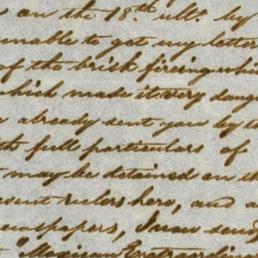 s on the 18.th ult.o by
unable to get my letter
of the brisk fireing whi
which made it very dang
already sent you by t
full particulars of
may be detained on th
sent rulers here, and a
ewspapers, I was sen
"Mexican Extraordin